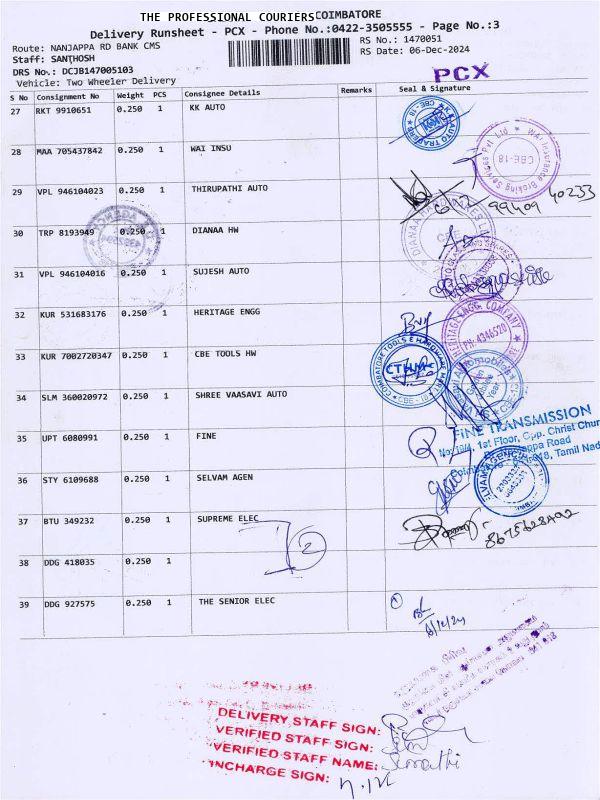 THE PROFESSIONAL COURIERS COIMBATORE
Delivery Runsheet - PCX - Phone No.:0422-3505555 - Page No.:3
Route: NANJAPPA RD BANK CMS
RS No.: 1470051
Staff: SANTHOSH
RS Date: 06-Dec-2024
DRS No.: DCJB147005103
Vehicle: Two Wheeler Delivery
PCX
S No Consignment No Weight PCS Consignee Details Remarks Seal & Signature
27 RKT 9910651 0.250 1 KK AUTO
28 MAA 705437842 0.250 1 WAI INSU
CBE-18
29 VPL 946104023 0.250 1 THIRUPATHI AUTO
99409 40233
30 TRP 8193949 0.250 1 DIANAA HW
CBE
31 VPL 946104016 0.250 1 SUJESH AUTO
32 KUR 531683176 0.250 1 HERITAGE ENGG
HERITAGE ENGG. COMPANY
PH: 4346520
33 KUR 7002720347 0.250 1 CBE TOOLS HW
COIMBATORE TOOLS & HARDWARE MART
CBE - 18
34 SLM 360020972 0.250 1 SHREE VAASAVI AUTO
35 UPT 6080991 0.250 1 FINE
FINE TRANSMISSION
1st Floor, Opp. Christ Chur
Tamil Nad
36 STY 6109688 0.250 1 SELVAM AGEN
37 BTU 349232 0.250 1 SUPREME ELEC
8675628492
2
38 DDG 418035 0.250 1
39 DDG 927575 0.250 1 THE SENIOR ELEC
6/12/24
DELIVERY STAFF SIGN:
VERIFIED STAFF SIGN:
VERIFIED STAFF NAME:
INCHARGE SIGN: